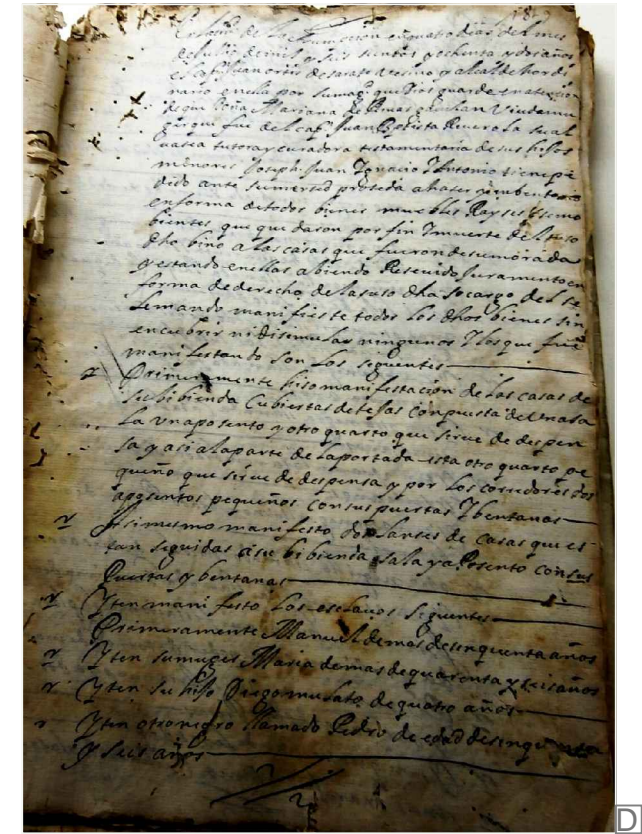 En la ciu.d de la Assumpcion en quatro dias del mes
de Julio de mil y seis sientos y ochenta y dos años
el cap.n Juan ortis de sarate Vesino y alcalde hordi
nario en ella por su mag.d que Dios guarde en atension
de que Doña Mariana de Viuda mu
ger que fue del cap.n Juan Baptista de la qual
tutora y curadora testamentaria de sus hijos
menores Joseph Juan Ygnacio Y Antonio tiene pe
dido ante su mersed proseda a haser ynbentario
en forma de todos bienes muebles Rayses Y semo
bientes que quedaron por fin Y muerte del suso
dho bino a las casas que fueron de su morada
y estando en ellas abiendo Reseuido Juramento en
forma de derecho de la suso dha so cargo del se
le mando manifieste todos los dhos bienes sin
encubrir ni disimular ningunos Y los que fue
manifestando son los siguentes
Primeramente hiso manifestacion de las casas de
su bibienda Cubiertas de tejas Conpuesta de una sa
la un aposento y otro quarto que sirue de despen
sa y asi a la parte de la portada esta otro quarto pe
queño que sirue de despensa y por los corredores dos
aposentos pequeños con sus puertas Y bentanas
Assimesmo manifesto dos lanses de casas que es
tan seguidas a su bibienda sala y aposento con sus
Puertas y bentanas
Yten manifesto los esclauos siguentes
Primeramente Manuel de mas de sinquenta años
Yten su muger Maria de mas de quarenta y seis años
Yten su hijo Diego mulato de quatro años
Yten otro negro llamado Pedro de edad de sinquenta
Y seis años
D